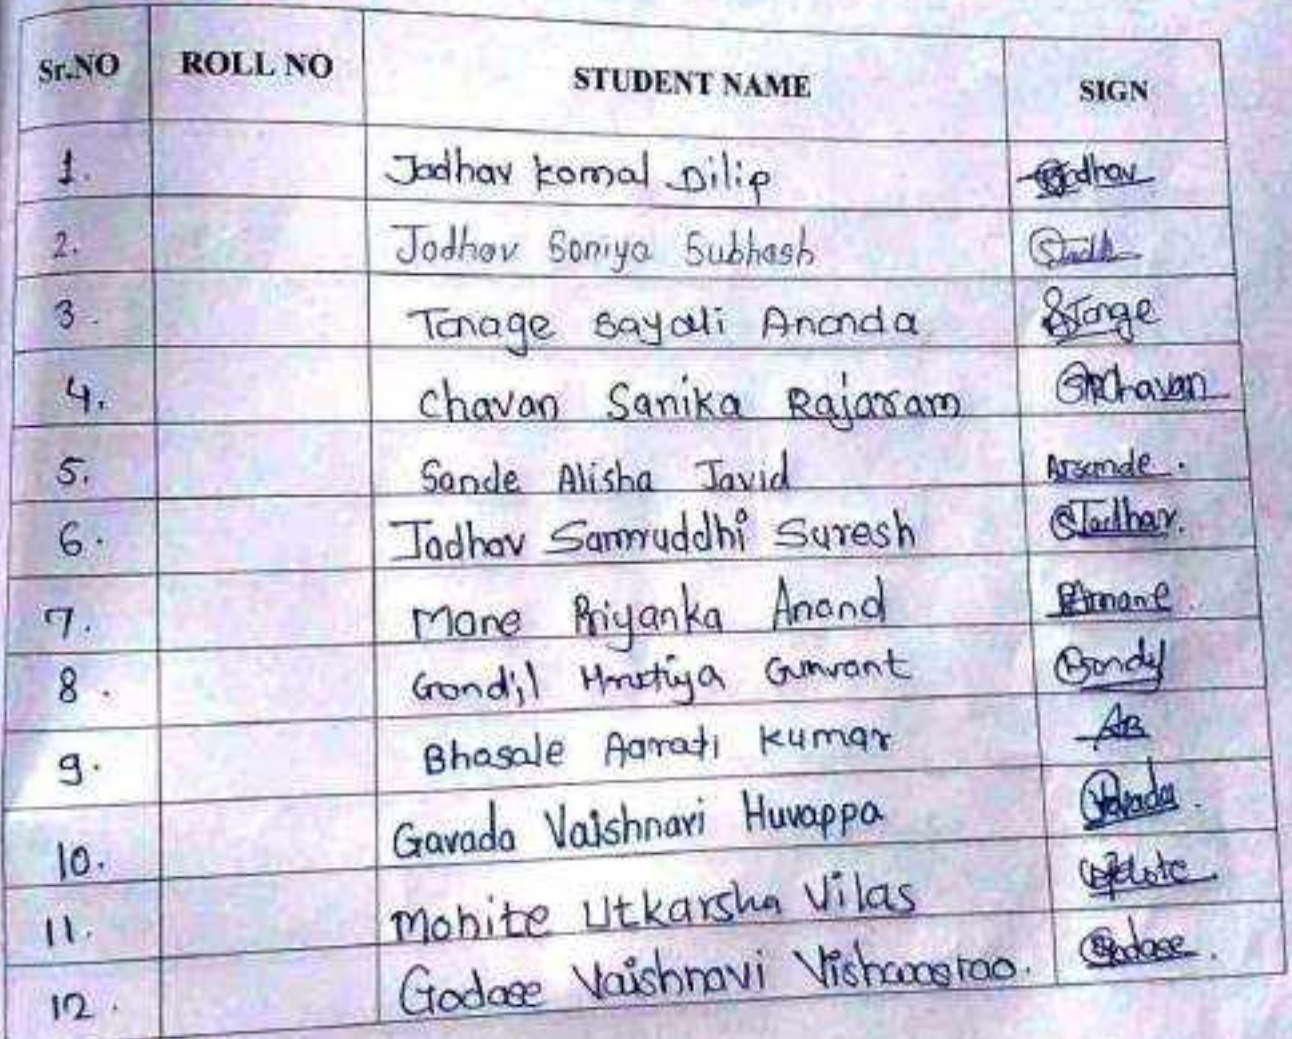 Sr.NO ROLL NO STUDENT NAME SIGN
1. Jadhav Komal Dilip Jadhav
2. Jadhav Soniya Subhash
3. Tanage Sayali Ananda STange
4. Chavan Sanika Rajaram SRChavan
5. Sande Alisha Javid Arsande.
6. Jadhav Samruddhi Suresh SJadhav.
7. Mane Priyanka Anand Pamane.
8. Gondil Gunvant
9. Bhosale Aarati Kumar AB
10. Gavada Vaishnavi Huvappa Gavada.
11. Mohite Utkarsha Vilas
12. Godase Vaishnavi Vishwasrao. Godase.